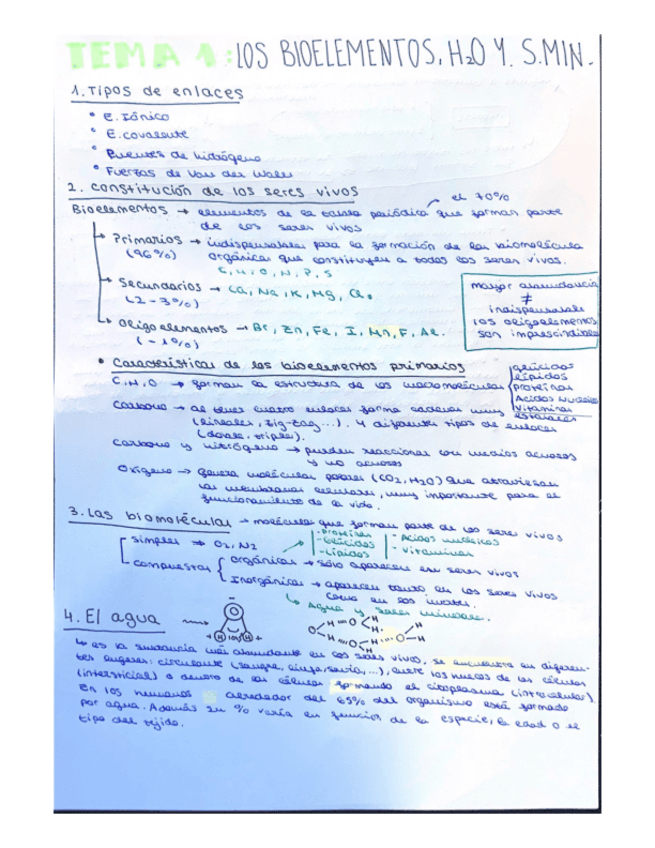 TEMA 1: LOS BIOELEMENTOS, H2O Y. S.MIN.
1. Tipos de enlaces
• E. Iónico
• E. covalente
• Puentes de hidrógeno
• Fuerzas de Van der Waals
2. Constitución de los seres vivos
el 70%
Bioelementos → elementos de la tabla periódica que forman parte
de los seres vivos
Primarios → indispensables para la formación de las biomolécula
(96%) orgánicas que constituyen a todos los seres vivos.
C, H, O, N, P, S
Secundarios → Ca, Na, K, Mg, Cl.
(2-3%)
mayor abundancia
≠
indispensable
los oligoelementos
son imprescindible
Oligoelementos → Br, Zn, Fe, I, Mn, F, Al.
(~1%)
• Características de los bioelementos primarios
C, H, O → forman la estructura de las macromoléculas
glúcidos
lípidos
proteínas
Acidos nucleicos
Vitaminas
Carbono → al tener cuatro enlaces forma cadenas muy estables
(lineales, zig-zag...). Y diferentes tipos de enlaces
(doble, triples).
Carbono y nitrógeno → pueden reaccionar con medios acuosos
y no acuosos
Oxígeno → genera moléculas polares (CO2, H2O) que atraviesan
las membranas celulares, muy importante para el
funcionamiento de la vida.
3. Las biomoléculas → moléculas que forman parte de los seres vivos
simples → O2, N2
- Proteínas
- Glúcidos
- Lípidos
- Acidos nucleicos
- Vitaminas
compuestas
orgánicas → sólo aparecen en seres vivos
Inorgánicas → aparecen tanto en los seres vivos
como en los inertes.
↳ Agua y sales minerales.
4. El agua →
↳ es la sustancia más abundante en los seres vivos, se encuentra en diferen-
tes lugares: circulante (sangre, linfa, savia, ...), entre los huecos de las células
(intersticial) o dentro de las células formando el citoplasma (intracelular).
En los humanos alrededor del 65% del organismo está formado
por agua. Además su % varía en función de la especie, la edad o el
tipo del tejido.